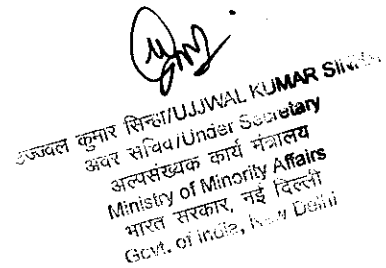 उज्जवल कुमार सिन्हा/UJJWAL KUMAR
अवर सचिव/Under Secretary
अल्पसंख्यक कार्य मंत्रालय
Ministry of Minority Affairs
भारत सरकार, नई दिल्ली
Govt. of India, New Delhi